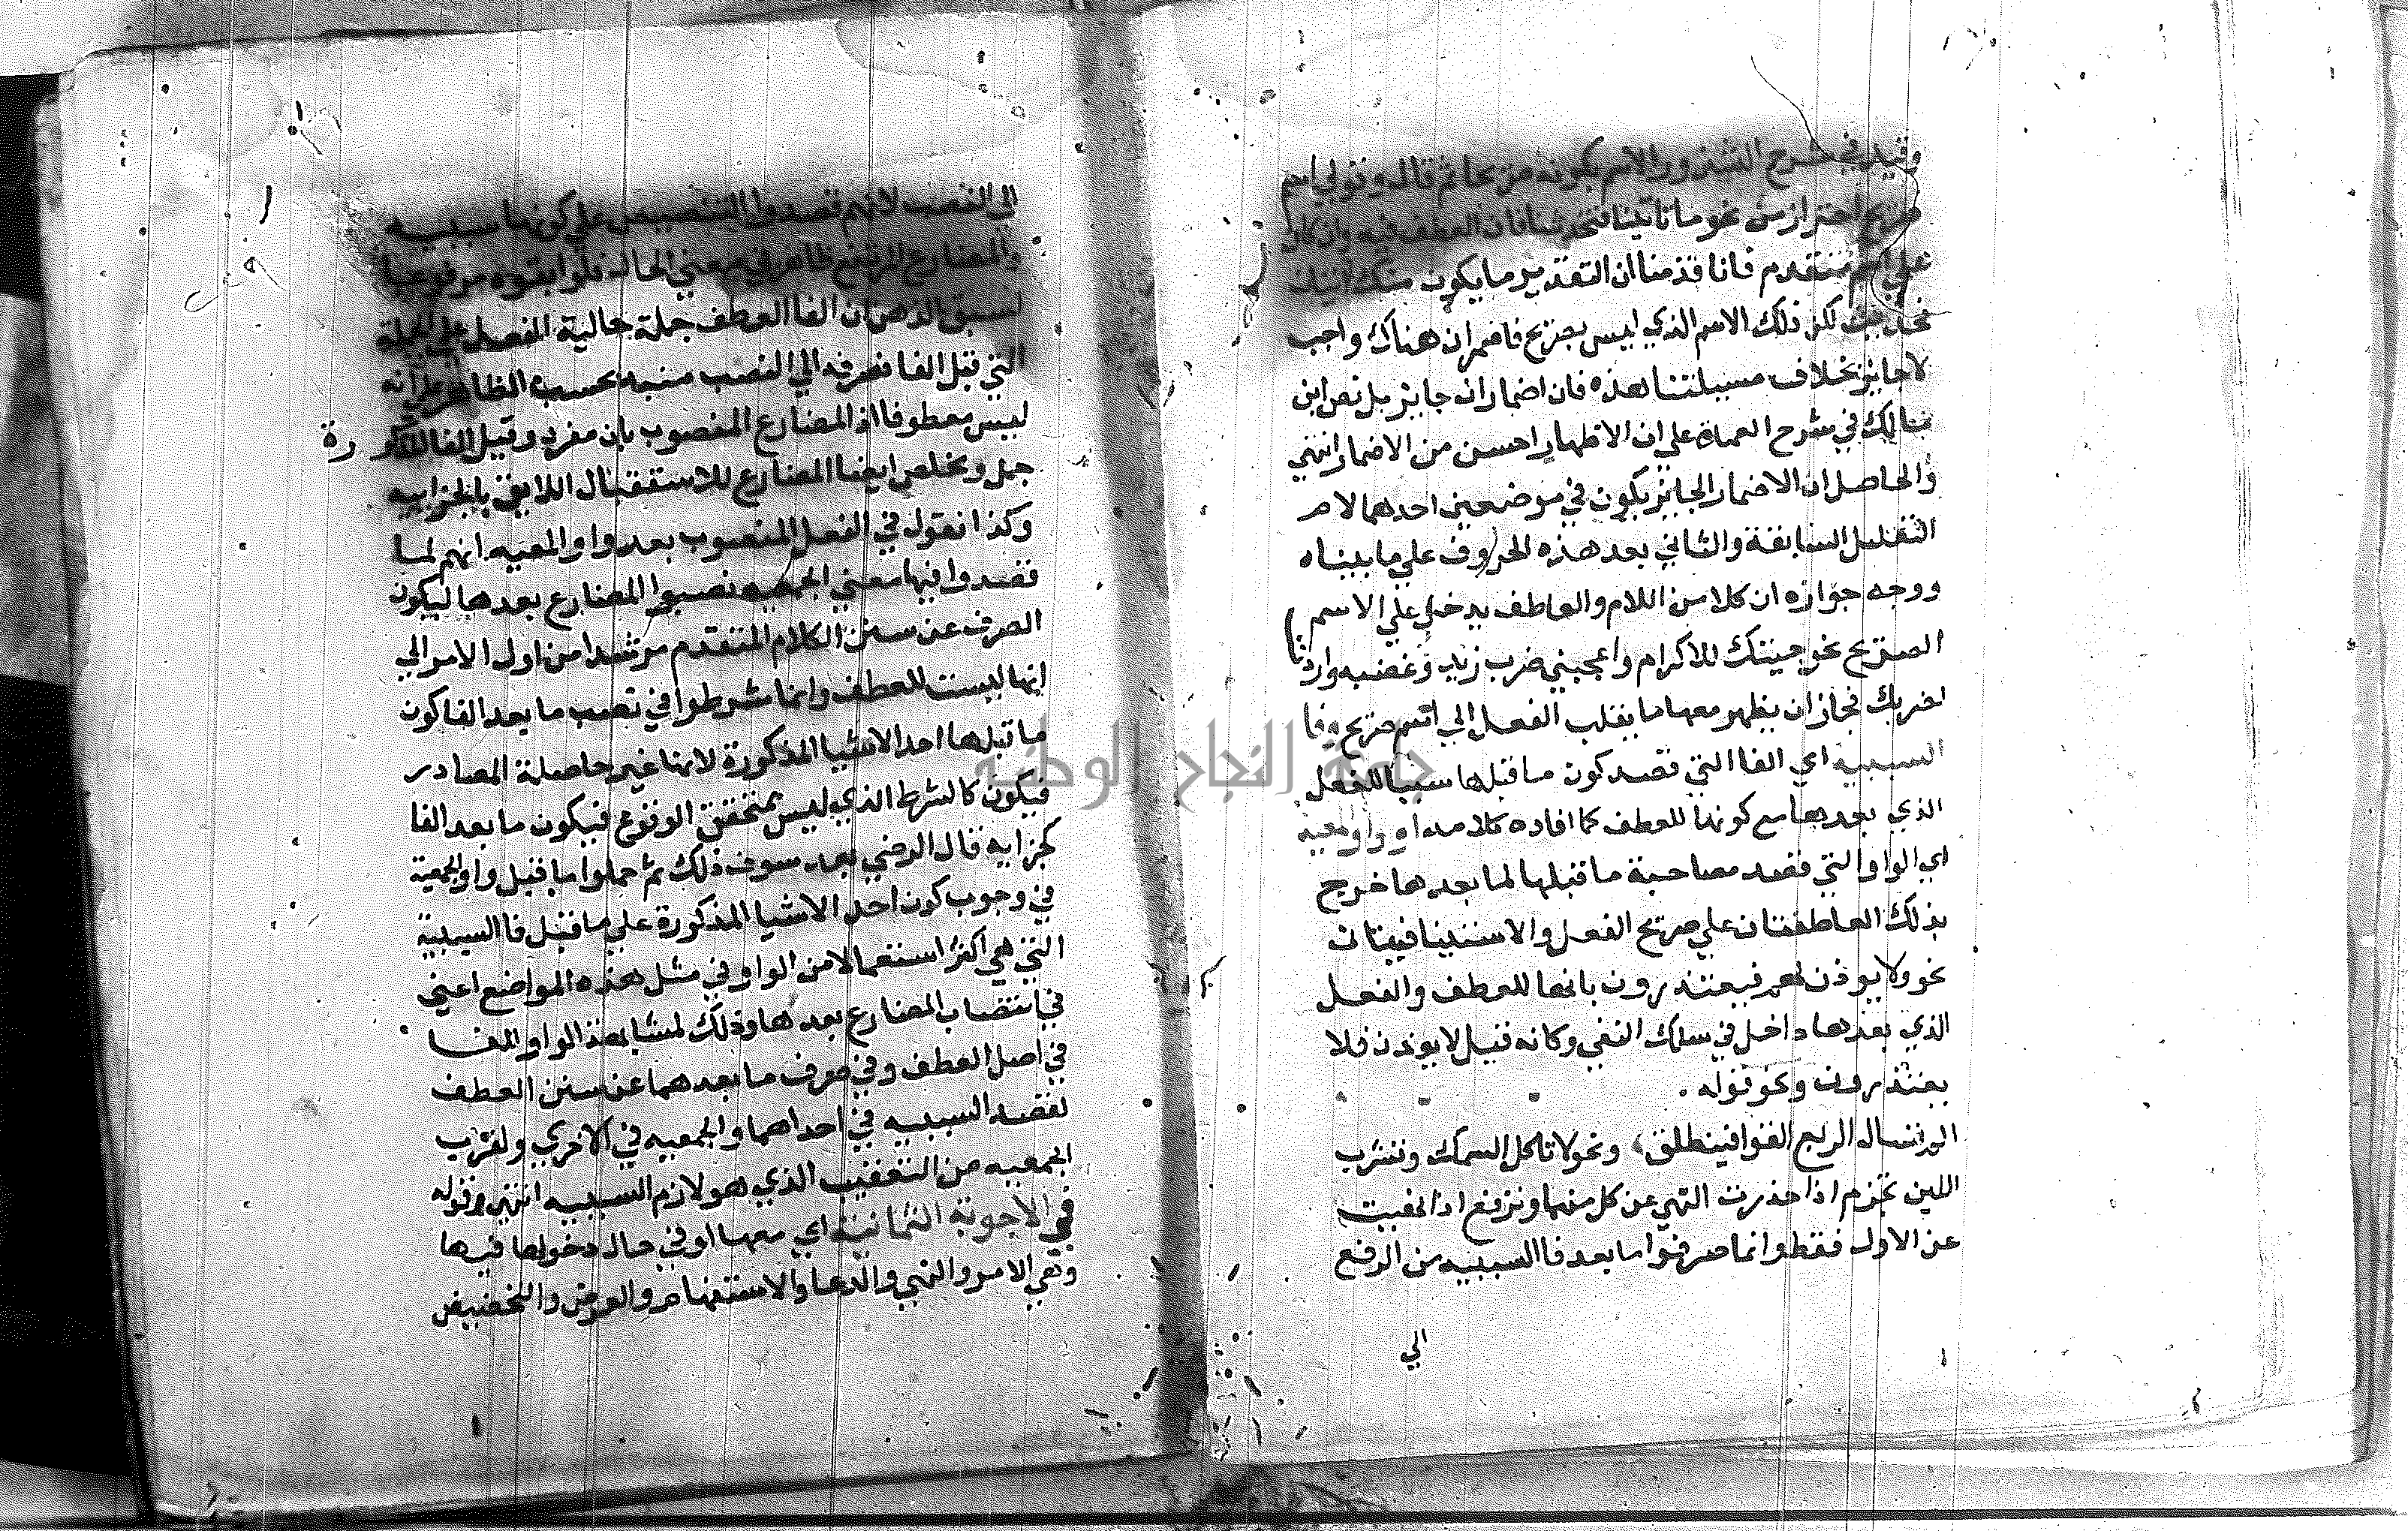 وقيد في شرح الشذور الاسم بكونه صريحا ثم قال وقولي اسم
صريح احتراز من نحو ما تاتينا فتحدثنا فان العطف فيه وان كان
على اسم متقدم فانا قدمنا ان التقدير ما يكون منك اتيان
فحديث لكن ذلك الاسم الذي ليس بصريح فاضمر ان هناك واجب
لا جايز بخلاف مسيلتنا هذه فان اضمار ان جايز بل نص ابن
مالك في شرح العمدة على ان الاظهار احسن من الاضمار انتهى
والحاصل ان الاضمار الجايز يكون في موضعين احدهما لام
التعليل السابقة والثاني بعد هذه الحروف على ما بيناه
ووجه جوازه ان كلا من اللام والعاطف يدخل على الاسم
الصريح نحو جيتك للاكرام واعجبني ضرب زيد وغضبه واردنا
لضربك فجاز ان يظهر معها ما يقلب الفعل الى اسم صريح وفا
السببيه اي الفا التي قصد كون ما قبلها سببا للفعل
الذي بعدها مع كونها للعطف كما افاده كلامه او واو معيه
اي الواو التي قصد مصاحبة ما قبلها لما بعدها خرج
بذلك العاطفتان على صريح الفعل والاستينافيتان
نحو ولا يوذن لهم فيعتذرون بانها للعطف والفعل
الذي بعدها داخل في سلك النفي وكانه قيل لا يوذن فلا
يعتذرون ونحو قوله .
الم تسال الربع القوا فينطلق، ونحو لا تاكل السمك وتشرب
اللبن بجزم اذا حذرت النهي عن كل منهما وترفع اذا نهيت
عن الاول فقط وانما صرفوا ما بعد فا السببيه من الرفع
الي
الى النصب لانهم قصدوا التنصيص على كونها سببيه
والمضارع المرتفع ظاهر في معنى الحال فلو ابقوه مرفوعا
لسبق الذهن ان الفا العطف جملة حالية الفعل على الجملة
التي قبل الفا فصرفه الى النصب منبه بحسب الظاهر على انه
ليس معطوفا اذ المضارع المنصوب بان مفرد وقبل الفا المذكورة
جمل ويخلص ايضا المضارع للاستقبال اللايق بالجزاييه
وكذا نقول في الفعل المنصوب بعد واو المعيه انهم لما
قصدوا فيها معنى الجمعيه نصبوا المضارع بعدها ليكون
الصرف عن سنن الكلام المتقدم مرشدا من اول الامر الى
انها ليست للعطف وانما شرطوا في نصب ما بعد الفا كون
ما قبلها احد الاشيا المذكورة لانها غير حاصلة المصادر
فيكون كالشرط الذي ليس بمتحقق الوقوع فيكون ما بعد الفا
كجزايه قال الرضي بعد سوق ذلك ثم حملوا ما قبل واو الجمعية
في وجوب كون احد الاشيا المذكورة على ما قبل فا السببية
التي هي اكثر استعمالا من الواو في مثل هذه المواضع اعني
في انتصاب المضارع بعدها وذلك لمشابهة الواو الفا
في اصل العطف وفي صرف ما بعدهما عن سنن العطف
لقصد السببيه في احداهما والجمعيه في الاخرى ولقرب
الجمعيه من التعقيب الذي هو لازم السببيه انتهى وقوله
في الاجوبة الثمانية اي معها او في حال دخولها فيها
وهي الامر والنهي والدعا والاستفهام والعرض والتحضيض
جامعة النجاح الوطنية